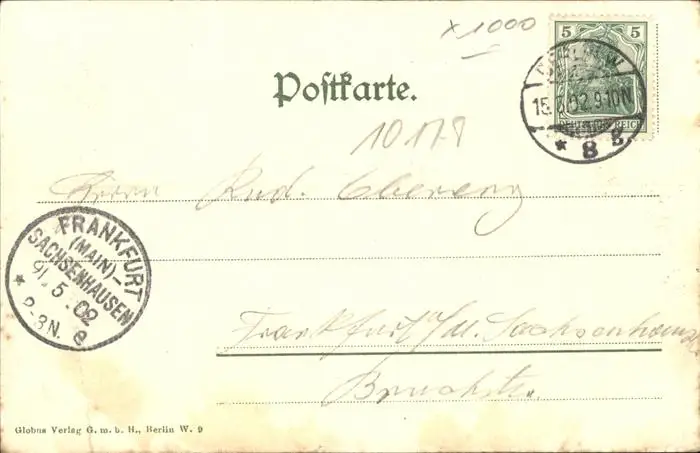 x 1000
5 5
DEUTSCHES REICH
BERLIN W.
15. 5. 02. 9-10 N
* 8 g.
Postkarte.
10178
Herrn Rud. Ebereng
FRANKFURT
(MAIN)-
SACHSENHAUSEN
5. 02
* 2-3N. e
Frankfurt a/M. Sachsenhausen
Bruchstr.
Globus Verlag G. m. b. H., Berlin W. 9